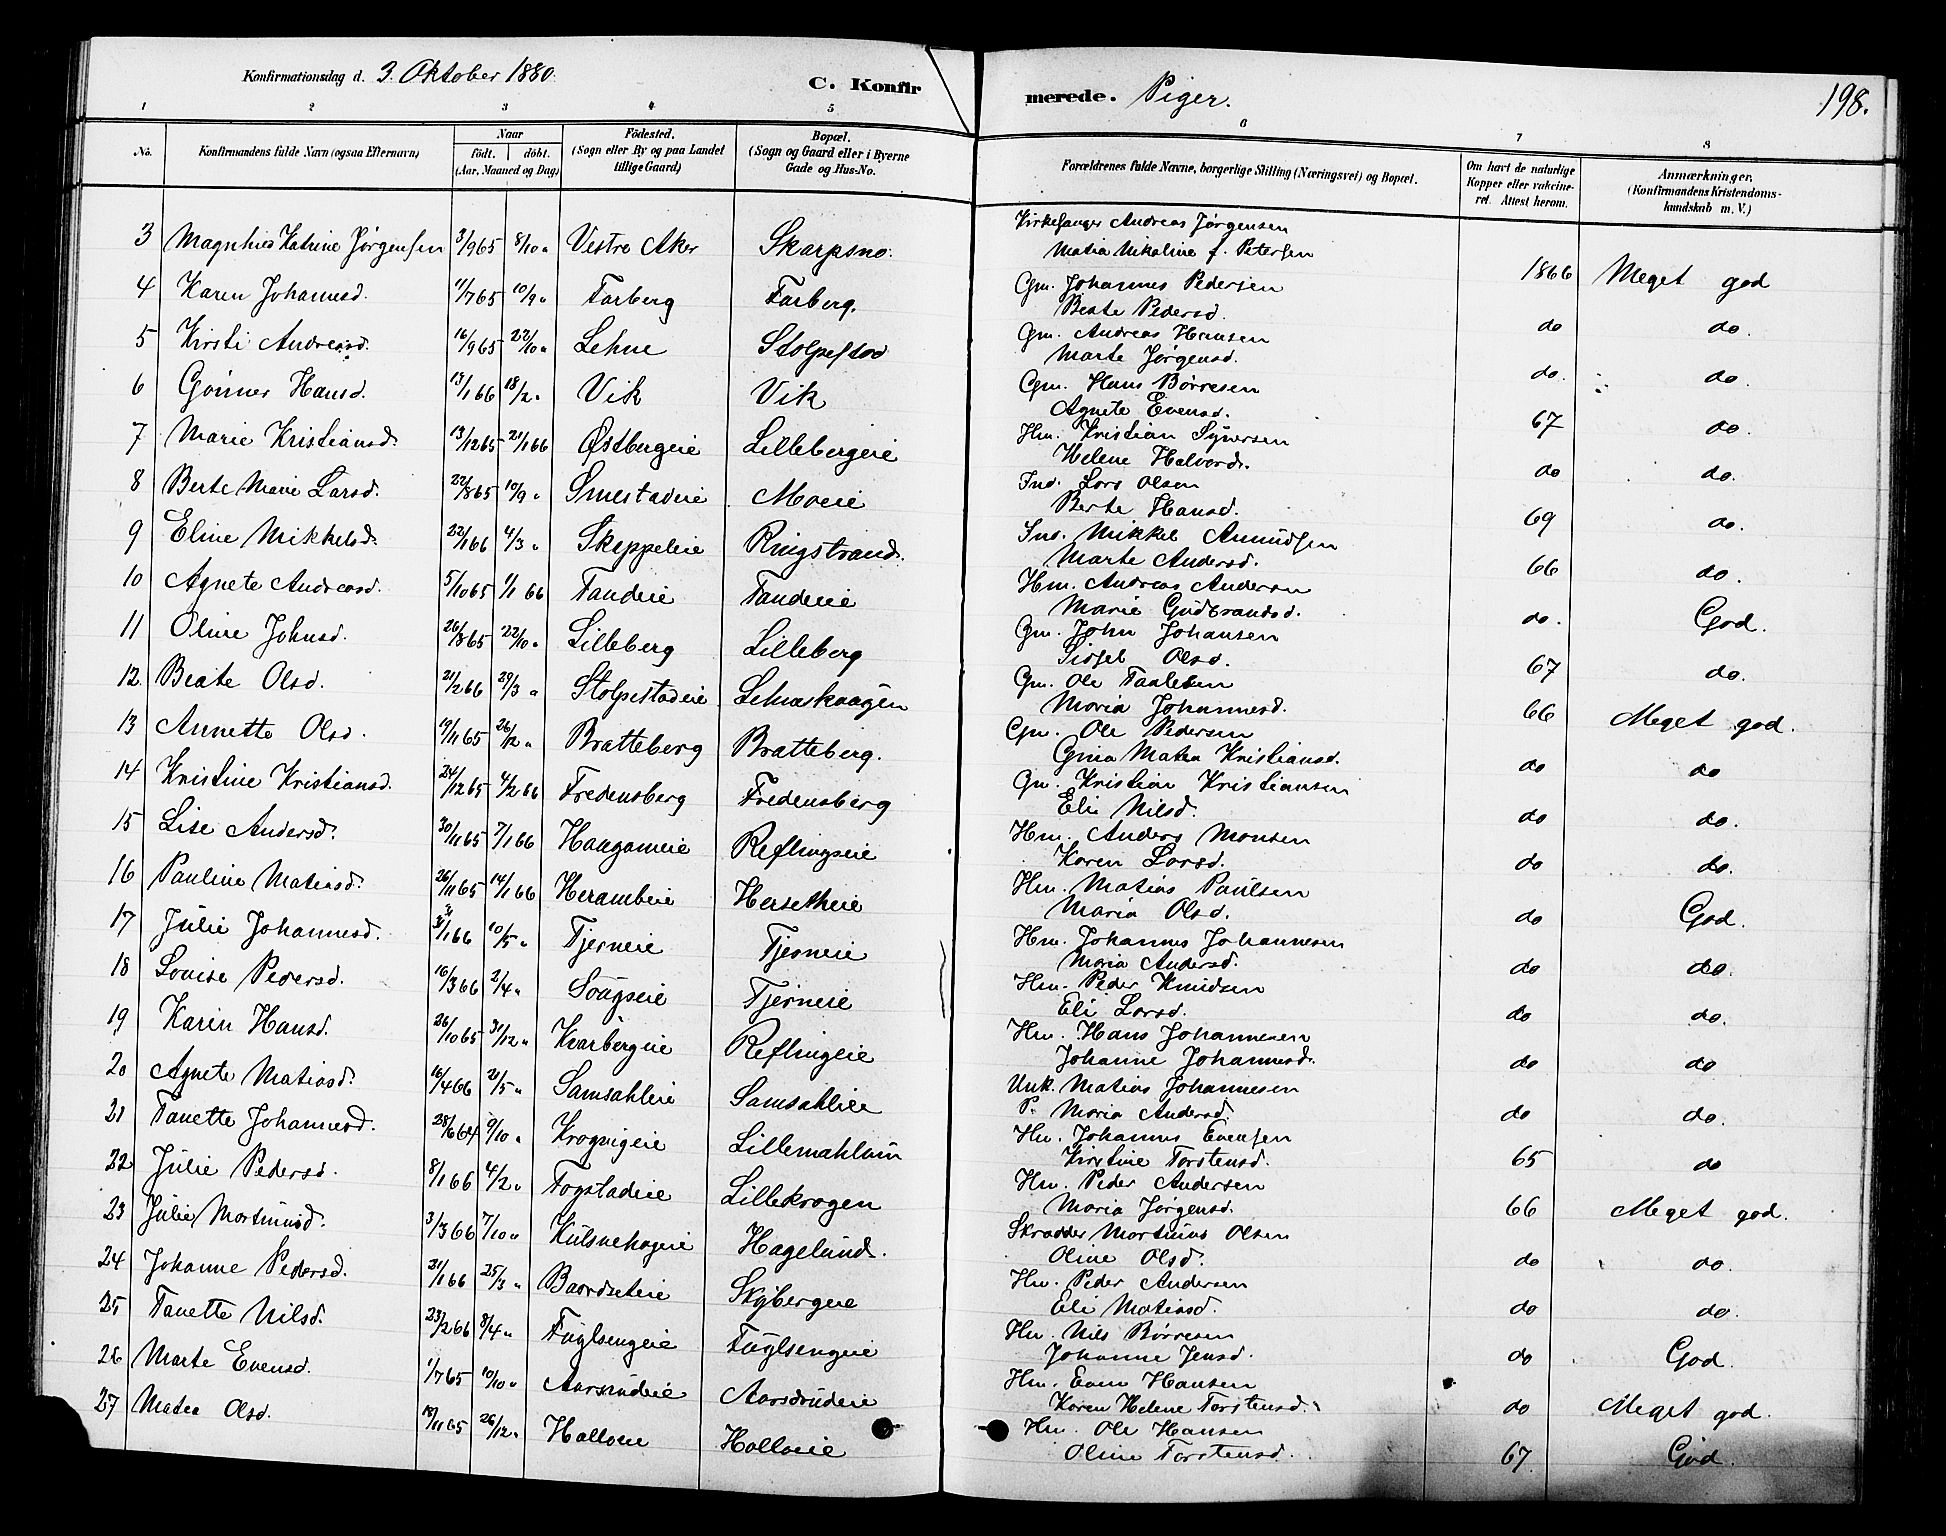 Konfirmationsdag d. 3. Oktober 1880.
C. Konfirmerede. Piger.
198.
1 2 3 4 5 6 7 8
No.
Konfirmandens fulde Navn (ogsaa Efternavn)
Naar
født. døbt.
(Aar, Maaned og Dag)
Fødested.
(Sogn eller By og paa Landet
tillige Gaard)
Bopæl.
(Sogn og Gaard eller i Byerne
Gade og Hus-No.
Forældrenes fulde Navne, borgerlige Stilling (Næringsvei) og Bopæl.
Om havt de naturlige
Kopper eller vakcine-
ret. Attest herom.
Anmærkninger.
(Konfirmandens Kristendoms-
kundskab m. V.)
3 Katrine Jørgensen 3/9 65 8/10 " Vestre Aker Skarpsno. Kirkesanger Andreas Jørgensen
Matia Nikoline f. Petersen 1866 Meget god
4 Karen Johannesd. 11/7 65 10/9 " Farberg Farberg. Gm. Johannes Pedersen
Beate Pedersd. do do.
5 Kirsti Andreasd. 16/9 65 22/10 " Lehne Stolpestad Gm. Andreas Hansen
Marte Jørgensd. do. do.
6 Gønner Hansd. 13/1 66 18/2 " Vik Vik Gm. Hans Børresen
Agnete Evensd. 67 do.
7 Marie Kristiansd. 13/12 65 21/1 66 Østbergeie Lillebergeie Hm. Kristian Syversen
Helene Halvorsd. do do.
8 Berte Marie Larsd. 22/8 65 10/9 " Smestadeie Moeie Ind. Lars Olsen
Berte Hansd. 69 do.
9 Eline Mikkelsd. 22/1 66 4/3 " Skeppeleie Ringstrand. Ind. Mikkel Amundsen
Marte Andersd. 66 do.
10 Agnete Andreasd. 5/10 65 1/1 66 Tandeie Tandeie Hm. Andreas Andersen
Marie Gudbrandsd. do. God.
11 Oline Johnsd. 26/8 65 22/10 " Lilleberg Lilleberg Gm. John Johansen
Sidsel Olsd. 67 do.
12. Beate Olsd. 21/2 66 29/3 " Stolpestadeie Lehneskaagen Gm. Ole Taalesen
Maria Johannesd. 66 Meget god.
13 Annette Olsd. 19/11 65 26/12 " Bratteberg Bratteberg. Gm. Ole Pedersen
Gina Matea Kristiansd. do do
14 Kristine Kristiansd. 24/12 65 4/2 66 Fredensberg Fredensberg Gm. Kristian Kristiansen
Eli Nilsd. do do.
15 Lise Andersd. 30/11 65 7/1 66 Haugameie Reflingseie Hm. Anders Monsen
Karen Larsd. do do.
16 Pauline Matiasd. 26/11 65 14/1 66 Herambeie Hersetheie Hm. Matias Paulsen
Maria Olsd. do God.
17 Julie Johannesd. 31/1 66 10/5 " Tjerneie Tjerneie Hm. Johannes Johannesen
Maria Andersd. do do.
18 Lovise Pedersd. 16/3 66 2/4 " Sougseie Tjerneie Hm. Peder Knudsen
Eli Larsd. do do.
19 Karin Hansd. 26/10 65 31/12 " Kvarbergeie Reflingeie Hm. Hans Johannesen
Johanne Johannesd. do do
20 Agnete Matiasd. 16/4 66 21/5 " Samsahleie Samsahleie Unk. Matias Johannesen
P. Maria Andersd. do do.
21 Tanette Johannesd. 28/6 64 9/10 " Krogvigeie Hm. Johannes Evensen
Kirstine Torstensd. 65 do
22 Julie Pedersd. 8/1 66 4/2 " Fogstadeie Lillekrogen Hm. Peder Andersen
Maria Jørgensd. 66 Meget god.
23 Julie Martinusd. 3/3 66 7/10 " Kulsvehageie Hagelund. Skrædder Martinus Olsen
Oline Olsd. do do.
24 Johanne Pedersd. 21/1 66 25/3 " Baardseteie Skybergeie Hm. Peder Andersen
Eli Matiasd. do do.
25 Tanette Nilsd. 23/2 66 8/4 " Fuglsengeie Fuglsengeie Hm. Nils Børresen
Johanne Jensd. do God.
26 Marte Evensd. 1/7 65 10/10 " Aarsrudeie Aarsdrudeie Hm. Even Hansen
Karen Helene Torstensd. do Meget god.
27 Matea Olsd. 19/11 65 26/12 " Halloeie Halloeie Hm. Ole Hansen
Oline Torstensd. 67 God.